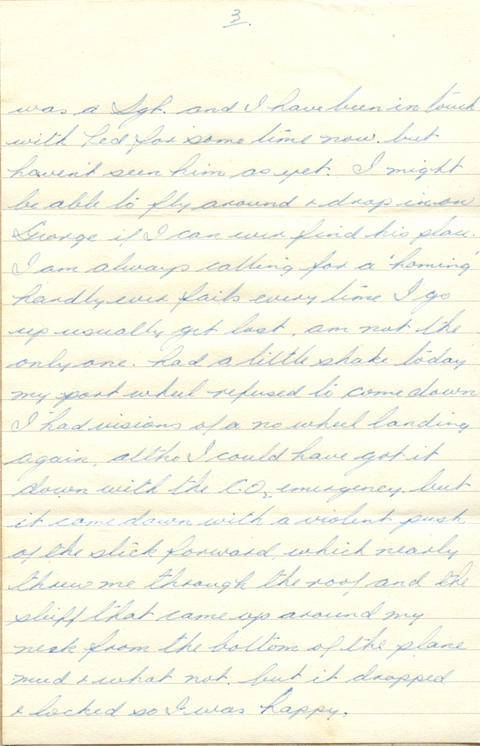 3.
was a Sgt. and I have been in touch
with Ted for some time now. but
haven't seen him as yet. I might
be able to fly around & drop in on
George if I can ever find his place.
I am always calling for a 'homing'
hardly ever fails every time I go
up usually get lost, am not the
only one. had a little shake today
my port wheel refused to come down
I had visions of a no wheel landing
again, altho I could have got it
down with the C.O2 emergency, but
it came down with a violent push
of the stick forward, which nearly
threw me through the roof and the
stuff that came up around my
neck from the bottom of the plane
mud & what not. but it dropped
& locked so I was happy.